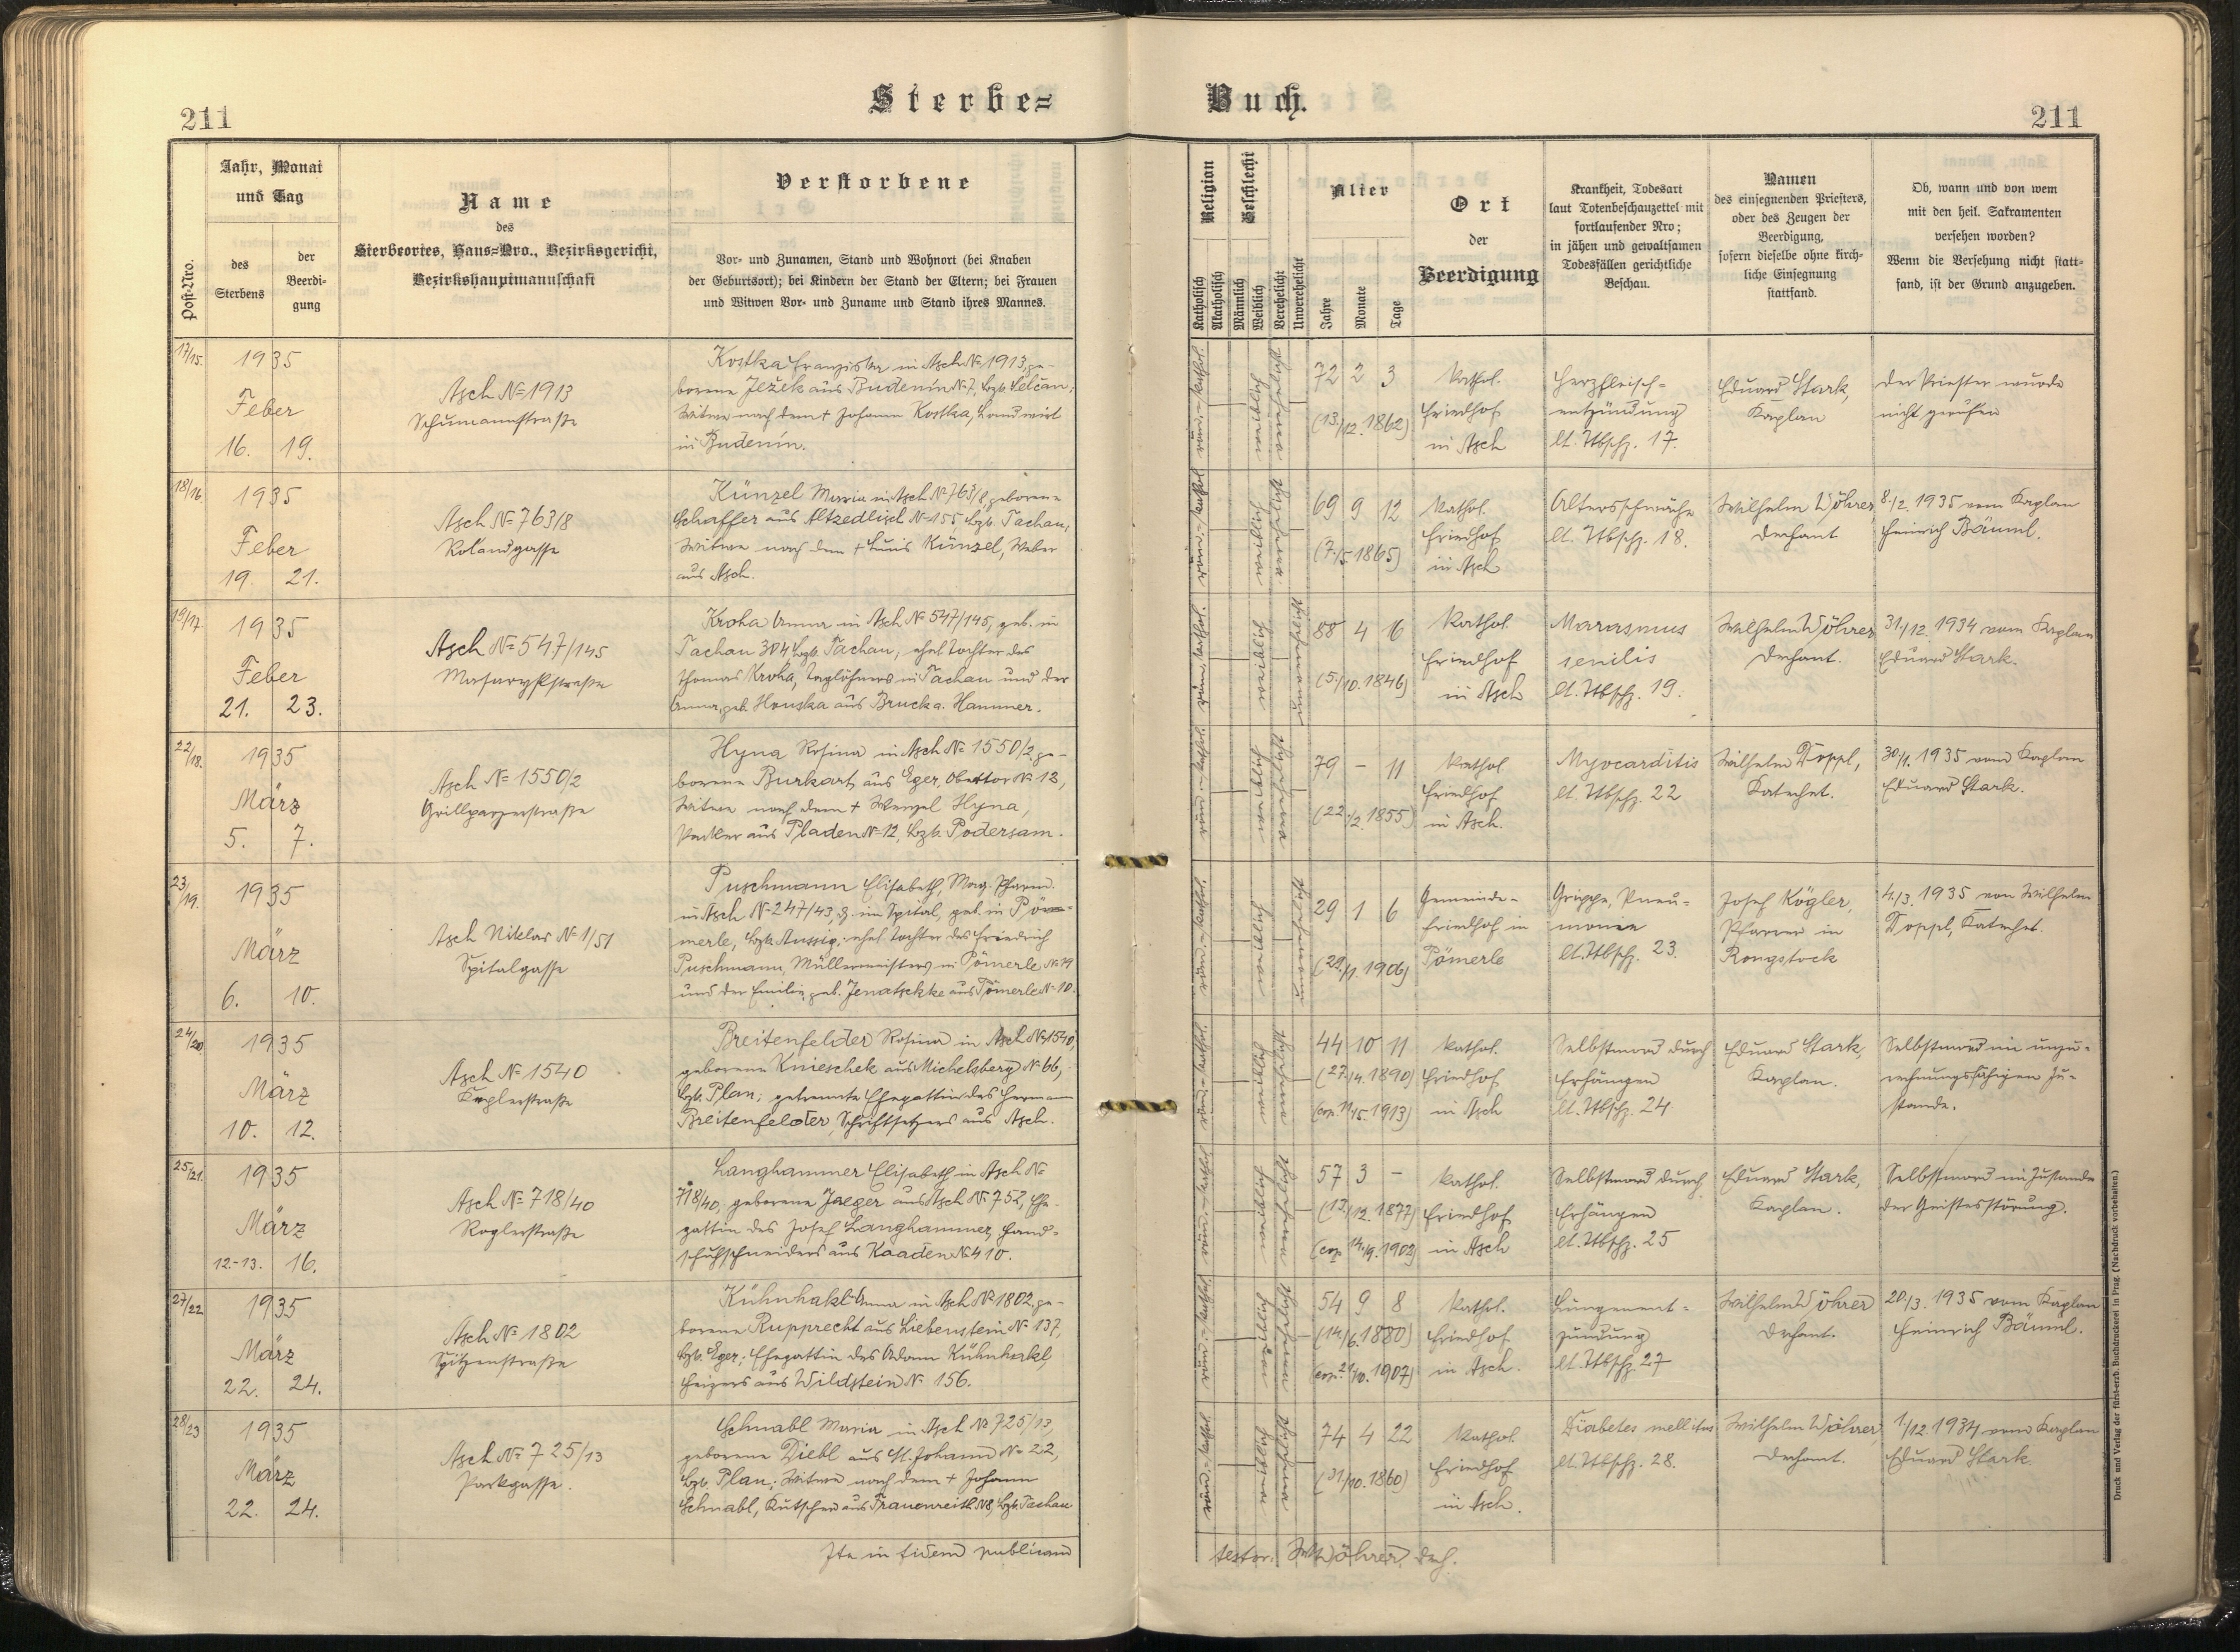 211
Sterbe=
Buch.
211
Post-Nro.
Jahr, Monat
und Tag
des
Sterbens
der
Beerdi-
gung
Name
des
Sterbeortes, Haus=Nro., Bezirksgericht,
Bezirkshauptmannschaft
Verstorbene
Vor- und Zunamen, Stand und Wohnort (bei Knaben
der Geburtsort); bei Kindern der Stand der Eltern; bei Frauen
und Witwen Vor- und Zuname und Stand ihres Mannes.
Religion
Katholisch
Akatholisch
Geschlecht
Männlich
Weiblich
Verehelicht
Unverehelicht
Alter
Jahre
Monate
Tage
Ort
der
Beerdigung
Krankheit, Todesart
laut Totenbeschauzettel mit
fortlaufender Nro;
in jähen und gewaltsamen
Todesfällen gerichtliche
Beschau.
Namen
des einsegnenden Priesters,
oder des Zeugen der
Beerdigung,
sofern dieselbe ohne kirch-
liche Einsegnung
stattfand.
Ob, wann und von wem
mit den heil. Sakramenten
versehen worden?
Wenn die Versehung nicht statt-
fand, ist der Grund anzugeben.
17/15.
1935
Feber
16. 19.
Asch No 1913
Schumannstraße
Kostka Franziska in Asch No 1913, ge-
borene Ježek aus Budenín No 7, Bzk.
Witwe nach dem + Johann Kostka, Landwirt
in Budenín.
röm.-kathol.
weiblich
72 2 3
(13./12. 1862)
Kathol.
Friedhof
in Asch
Herzfleisch-
entzündung
lt. Ttbschz. 17.
Eduard Stark,
Kaplan
Der Priester wurde
nicht gerufen
18/16.
1935
Feber
19. 21.
Asch No 763/8
Rolandgasse
Künzel Maria in Asch No 763/8, geborene
Schaffer aus Altzedlisch No 155 Bzk. Tachau,
Witwe nach dem + Künzel, Weber
aus Asch.
röm.-kathol.
weiblich
69 9 12
(7./5. 1865)
Kathol.
Friedhof
in Asch
Altersschwäche
lt. Ttbschz. 18.
Wilhelm Wöhrer
Dechant
8./2. 1935 vom Kaplan
Heinrich Bäuml.
19/17.
1935
Feber
21. 23.
Asch No 547/145
Masarykstraße
Kroha Anna in Asch No 547/145, geb. in
Tachau 304 Bzk. Tachau, ehel. Tochter des
Thomas Kroha, Taglöhners in Tachau und der
Anna, geb. Houska aus Bruck a. Hammer.
röm.-kathol.
weiblich
88 4 16
(5./10. 1846)
Kathol.
Friedhof
in Asch
Marasmus
senilis
lt. Ttbschz. 19.
Wilhelm Wöhrer
Dechant.
31./12. 1934 vom Kaplan
Eduard Stark.
22/18.
1935
März
5. 7.
Asch No 1550/2
Grillparzerstraße
Hyna Rosina in Asch No 1550/2, ge-
borene Burkart, aus Eger, Obertor No 12,
Witwe nach dem + Wenzel Hyna,
Packer aus Pladen No 12, Bzk. Podersam.
röm.-kathol.
weiblich
79 - 11
(22./2. 1855)
Kathol.
Friedhof
in Asch.
Myocarditis
lt. Ttbschz. 22
Wilhelm Toppl,
Katechet.
30./1. 1935 vom Kaplan
Eduard Stark.
23/19.
1935
März
6. 10.
Asch Niklas No 1/51
Spitalgasse
Puschmann Elisabeth, Mag. Pharm.
in Asch No 247/43, z. im Spital, geb. in Pöm-
merle, Bzk. Aussig, ehel. Tochter des Friedrich
Puschmann, Müllermeisters in Pömerle No 74
und der Emilie, geb. Jenatschke aus Pömerle No 10.
weiblich
29 1 6
(29./1. 1906)
Gemeinde-
friedhof in
Pömerle
Grippe, Pneu-
monie
lt. Ttbschz. 23.
Josef Kögler,
Pfarrer in
Rongstock
4./3. 1935 von Wilhelm
Toppl, Katechet.
24/20.
1935
März
10. 12.
Asch No 1540
Keplerstraße
Breitenfelder Rosina in Asch No 1540,
geborene Knieschek aus Michelsberg No 66,
Bzk. Plan; getrennte Ehegattin des Hermann
Breitenfelder, Schriftsetzers aus Asch.
weiblich
44 10 11
(27./4. 1890)
(cop. 11./5. 1913)
Kathol.
Friedhof
in Asch
Selbstmord durch
Erhängen
lt. Ttbschz. 24
Eduard Stark,
Kaplan.
Selbstmord im unzu-
rechnungsfähigen Zu-
stande.
25/21.
1935
März
12.-13. 16.
Asch No 718/40
Roglerstraße
Langhammer Elisabeth in Asch No
718/40, geborene Jaeger aus Asch No 752, Ehe-
gattin des Josef Langhammer, Hand-
schuhschneiders aus Kaaden No 410.
weiblich
57 3 -
(13./12. 1877)
(cop. 14./9. 1902)
Kathol.
Friedhof
in Asch
Selbstmord durch
Erhängen
lt. Ttbschz. 25
Eduard Stark,
Kaplan.
Selbstmord im Zustande
der Geistesstörung.
27/22.
1935
März
22. 24.
Asch No 1802
Spitzenstraße
Kühnhakl Anna in Asch No 1802, ge-
borene Rupprecht aus Liebenstein No 137,
Bzk. Eger; Ehegattin des Adam Kühnhakl,
Heizers aus Wildstein No 156.
weiblich
54 9 8
(14./6. 1880)
(cop. /10. 1907)
Kathol.
Friedhof
in Asch.
Lungenent-
zündung
lt. Ttbschz. 27
Wilhelm Wöhrer
Dechant.
20./3. 1935 vom Kaplan
Heinrich Bäuml.
28/23
1935
März
22. 24.
Asch No 725/13
Parkgasse.
Schnabl Maria in Asch No 725/13,
geborene Diebl aus St. Johann No 22,
Bzk. Plan; Witwe nach dem + Johann
Schnabl, Kutscher aus Frauenreith No 8, Bzk. Tachau
röm.-kathol.
weiblich
74 4 22
(31./10. 1860)
Kathol.
Friedhof
in Asch.
Diabetes mellitus
lt. Ttbschz. 28.
Wilhelm Wöhrer,
Dechant.
1./12. 1934 vom Kaplan
Eduard Stark
Ita in fidem publicam
testor: Wöhrer, Dech.
Druck und Verlag der fürst-erzb. Buchdruckerei in Prag. (Nachdruck vorbehalten.)